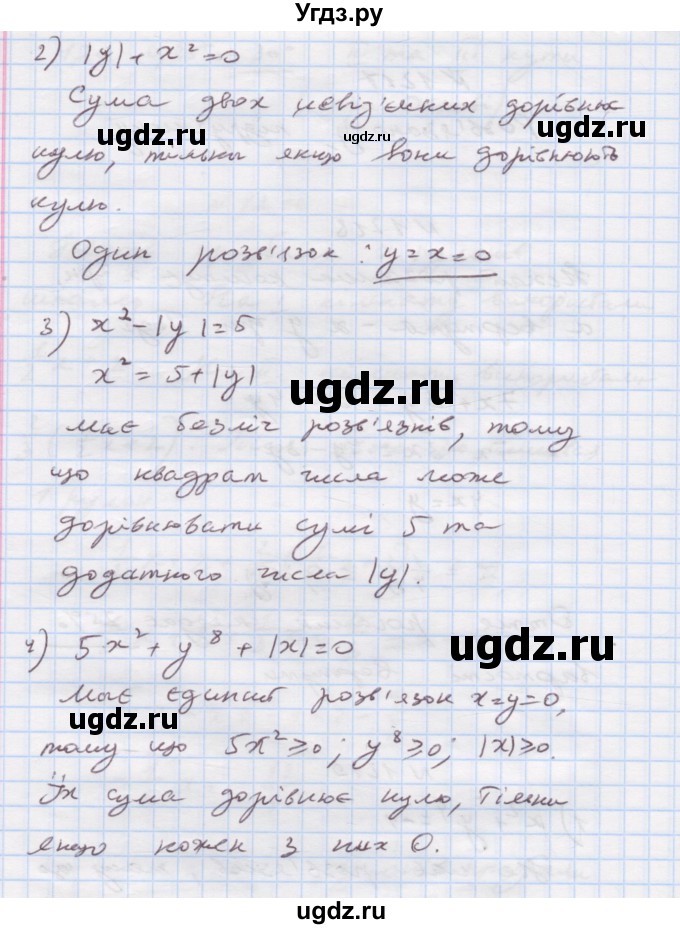 Угдз.ру
2) |y| + x² = 0
Сума двох невід'ємних дорівнює
ugdz.ru ugdz.ru
нулю, тільки якщо вони дорівнюють
нулю.
Один розв'язок : y = x = 0
3) x² - |y| = 5
x² = 5 + |y|
ugdz.ru
має безліч розв'язків, тому
що квадрат числа може
дорівнювати сумі 5 та
додатного числа |y|.
4) 5x² + y⁸ + |x| = 0
ugdz.ru
має єдиний розв'язок x=y=0,
ugdz.ru
тому що 5x² ≥ 0 ; y⁸ ≥ 0 ; |x| ≥ 0.
Їх сума дорівнює нулю, тільки
якщо кожен з них 0.
ugdz.ru
ugdz.ru